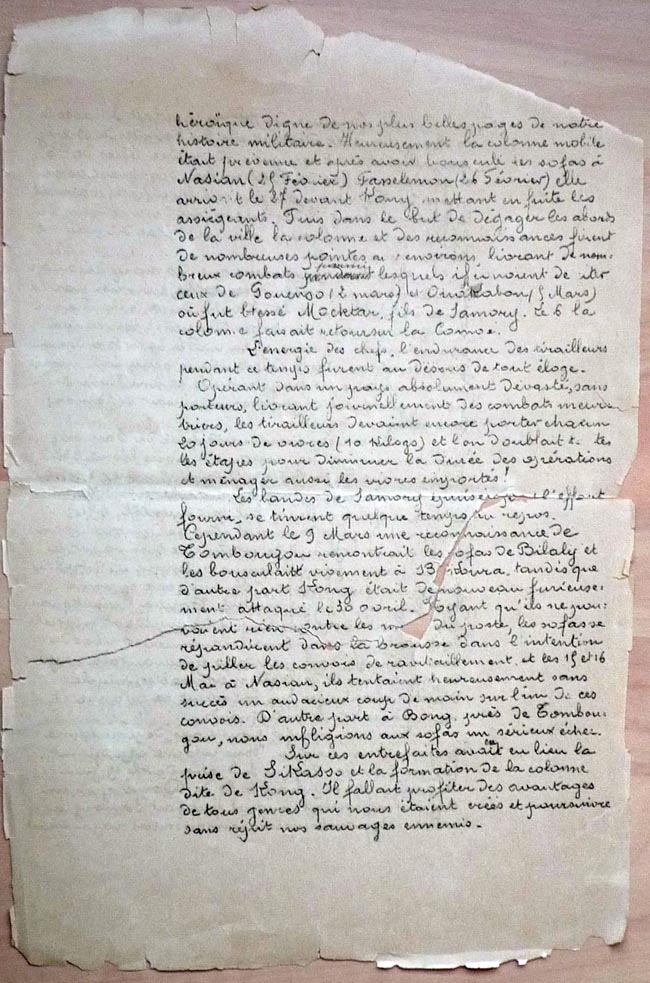 héroïque digne de nos plus belles pages de notre
histoire militaire. Heureusement la colonne mobile
était prévenue et après avoir bousculé les sofas à
Nasian (25 Février) Fasselemon (26 Février) elle
arriv t le 27 devant Kong mettant en fuite les
assiégeants. Puis dans le but de dégager les abords
de la ville la colonne et des reconnaissances firent
de nombreuses pointes au environs, livrant de nom-
breux combats parmi lesquels il convient de citer
ceux de Gouenso (2 mars) et (5 Mars)
où fut blessé Mocktar, fils de Samory. Le 6 la
colonne faisait retour sur la Comoe.
L'énergie des chefs, l'endurance des tirailleurs
pendant ce temps furent au dessus de tout éloge.
Opérant dans un pays absolument dévasté, sans
porteurs, livrant journellement des combats meur-
triers, les tirailleurs devaient encore porter chacun
20 jours de vivres (10 kilogs) et l'on doublait t tes
les étapes pour diminuer la durée des opérations
et ménager aussi les vivres emportés!
Les bandes de Samory l'effort
fourni, se tinrent quelque temps au repos.
Cependant le 9 Mars une reconnaissance de
Tombougou rencontrait les sofas de Bilaly et
les bousculait vivement à tandis que
d'autre part Kong était de nouveau furieuse-
ment attaqué le 30 avril. Voyant qu'ils ne pou-
vaient rien contre les m du poste, les sofas se
répandirent dans la brousse dans l'intention
de piller les convois de ravitaillement, et les 15 et 16
Mai à Nasian, ils tentaient heureusement sans
succès un audacieux coup de main sur l'un de ces
convois. D'autre part à Bong, près de Tombou-
gou, nous infligions aux sofas un sérieux échec.
Sur ces entrefaites avait eu lieu la
prise de Sikasso et la formation de la colonne
dite de Kong. Il fallait profiter des avantages
de tous genres qui nous étaient créés et poursuivre
sans répit nos sauvages ennemis.